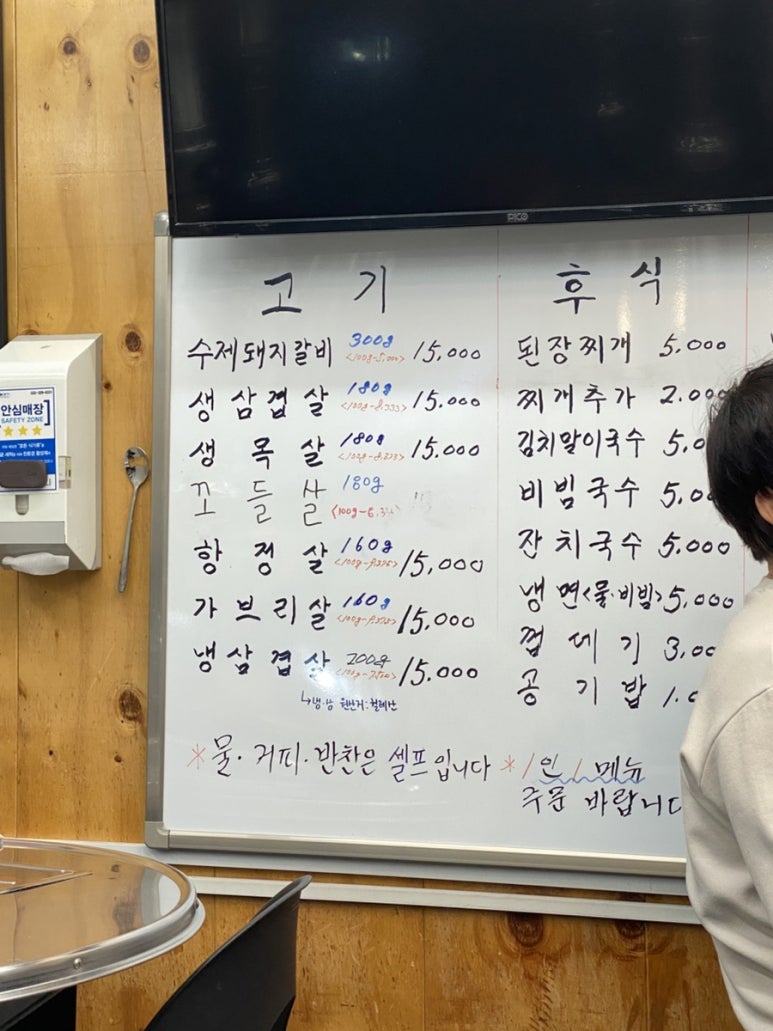 PICO
고기
수제돼지갈비 300g <100g-5,000> 15,000
생삼겹살 180g <100g-8,333> 15.000
생목살 180g <100g-8,333> 15,000
꼬들살 180g
항정살 160g 15,000
가브리살 160g 15,000
냉삼겹살 200g <100g-7500> 15.000
↳냉.삼 원산지:
*물·커피·반찬은 셀프입니다
후식
된장찌개 5.000
찌개추가 2.000
김치말이국수 5,0
비빔국수 5,00
잔치국수 5.000
냉면<물·비빔>5,000
껍데기 3,00
공기밥 1.0
*1인 1메뉴
주문 바랍니다
안심매장
SAFETY ZONE